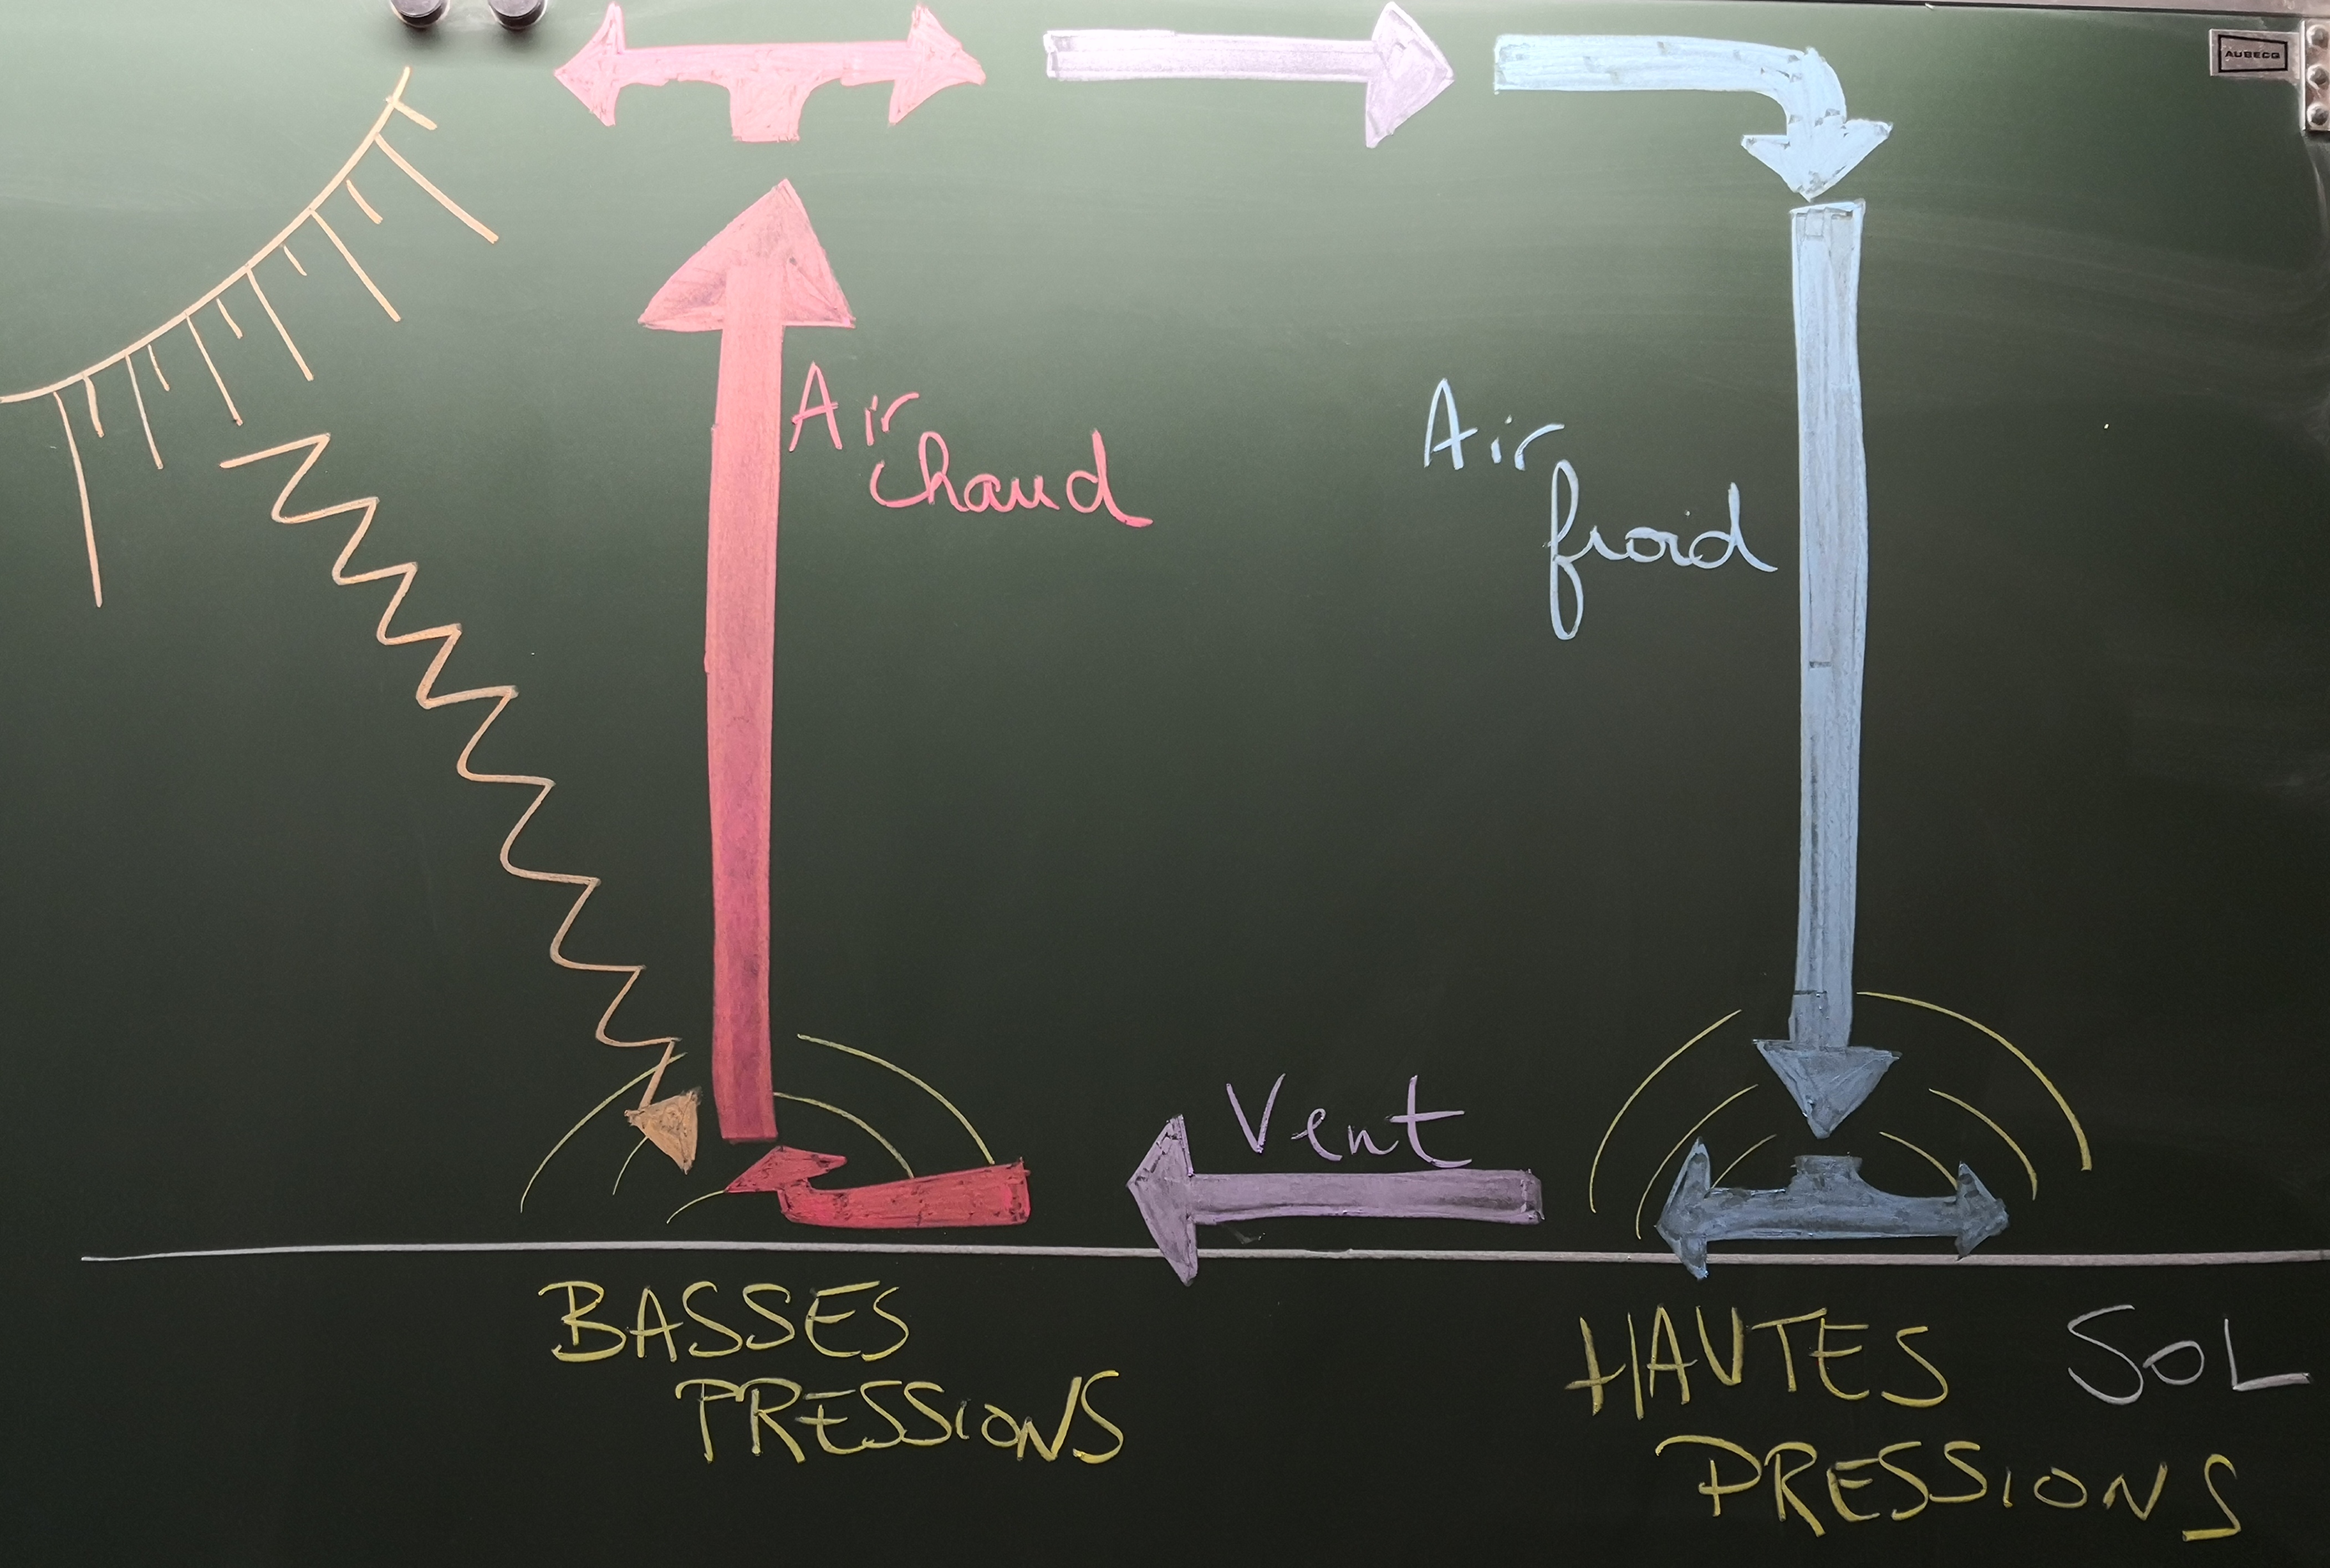 AUBECQ
Air
chaud
Air
froid
Vent
BASSES
PRESSIONS
HAUTES
PRESSIONS
SOL